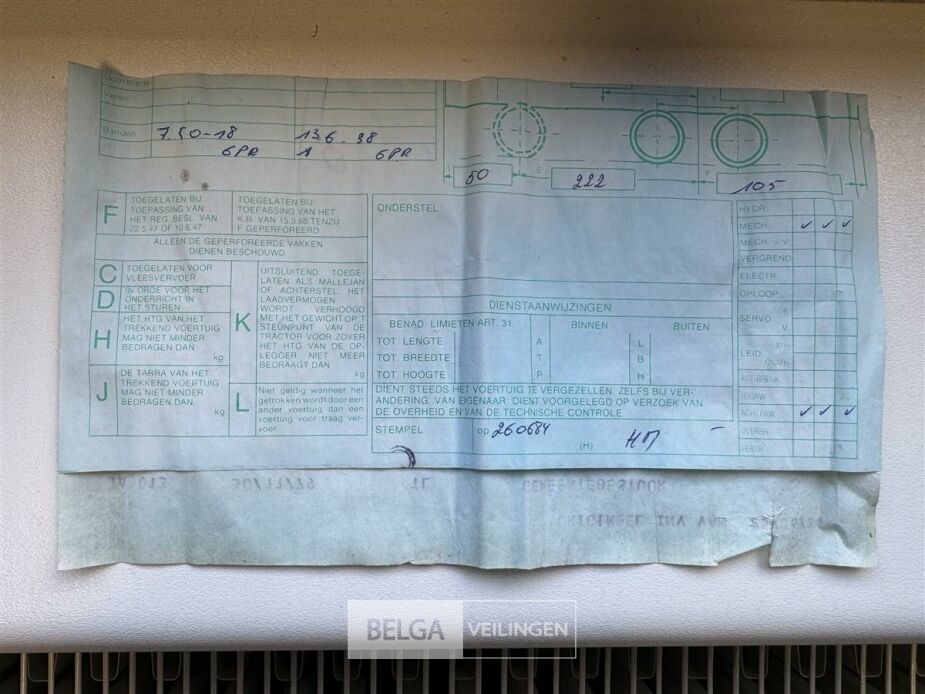 Veren
Banden 7.50-18 13.6-38
6PR A 6PR
50 E 222 105
F TOEGELATEN BIJ TOEPASSING VAN HET REG. BESL. VAN 22.5.47 OF 10.6.47
TOEGELATEN BIJ TOEPASSING VAN HET K.B. VAN 15.3.68 TENZIJ F GEPERFOREERD
ALLEEN DE GEPERFOREERDE VAKKEN DIENEN BESCHOUWD
C TOEGELATEN VOOR VLEESVERVOER
D IN ORDE VOOR HET ONDERRICHT IN HET STUREN
H HET HTG VAN HET TREKKEND VOERTUIG MAG NIET MINDER BEDRAGEN DAN
kg
J DE TARRA VAN HET TREKKEND VOERTUIG MAG NIET MINDER BEDRAGEN DAN
kg
K UITSLUITEND TOEGE-
LATEN ALS MALLEJAN
OF ACHTERSTEL HET
LAADVERMOGEN
WORDT VERHOOGD
MET HET GEWICHT OP 'T
STEUNPUNT VAN DE
TRACTOR VOOR ZOVER
HET HTG VAN DE OP-
LEGGER NIET MEER
BEDRAAGT DAN
kg
L Niet geldig wanneer het
getrokken wordt door een
ander voertuig dan een
voertuig voor traag ver-
voer
ONDERSTEL:
DIENSTAANWIJZINGEN
BENAD. LIMIETEN ART. 31 BINNEN BUITEN
TOT. LENGTE A L
TOT. BREEDTE T B
TOT. HOOGTE P H
DIENT STEEDS HET VOERTUIG TE VERGEZELLEN. ZELFS BIJ VER-
ANDERING, VAN EIGENAAR: DIENT VOORGELEGD OP VERZOEK VAN
DE OVERHEID EN VAN DE TECHNISCHE CONTROLE
STEMPEL op 260684
(H)
HYDR.
MECH. ✓ ✓ ✓
MECH + V.
VERGREND
ELECTR.
OPLOOP
SERVO
V.
LEID
AUT. BREUK
VOORW.
ACHTERW. ✓ ✓ ✓
30/11/79 TL GEMEENTEBESTUUR
ORIGINEEL INV VAN
BELGA VEILINGEN